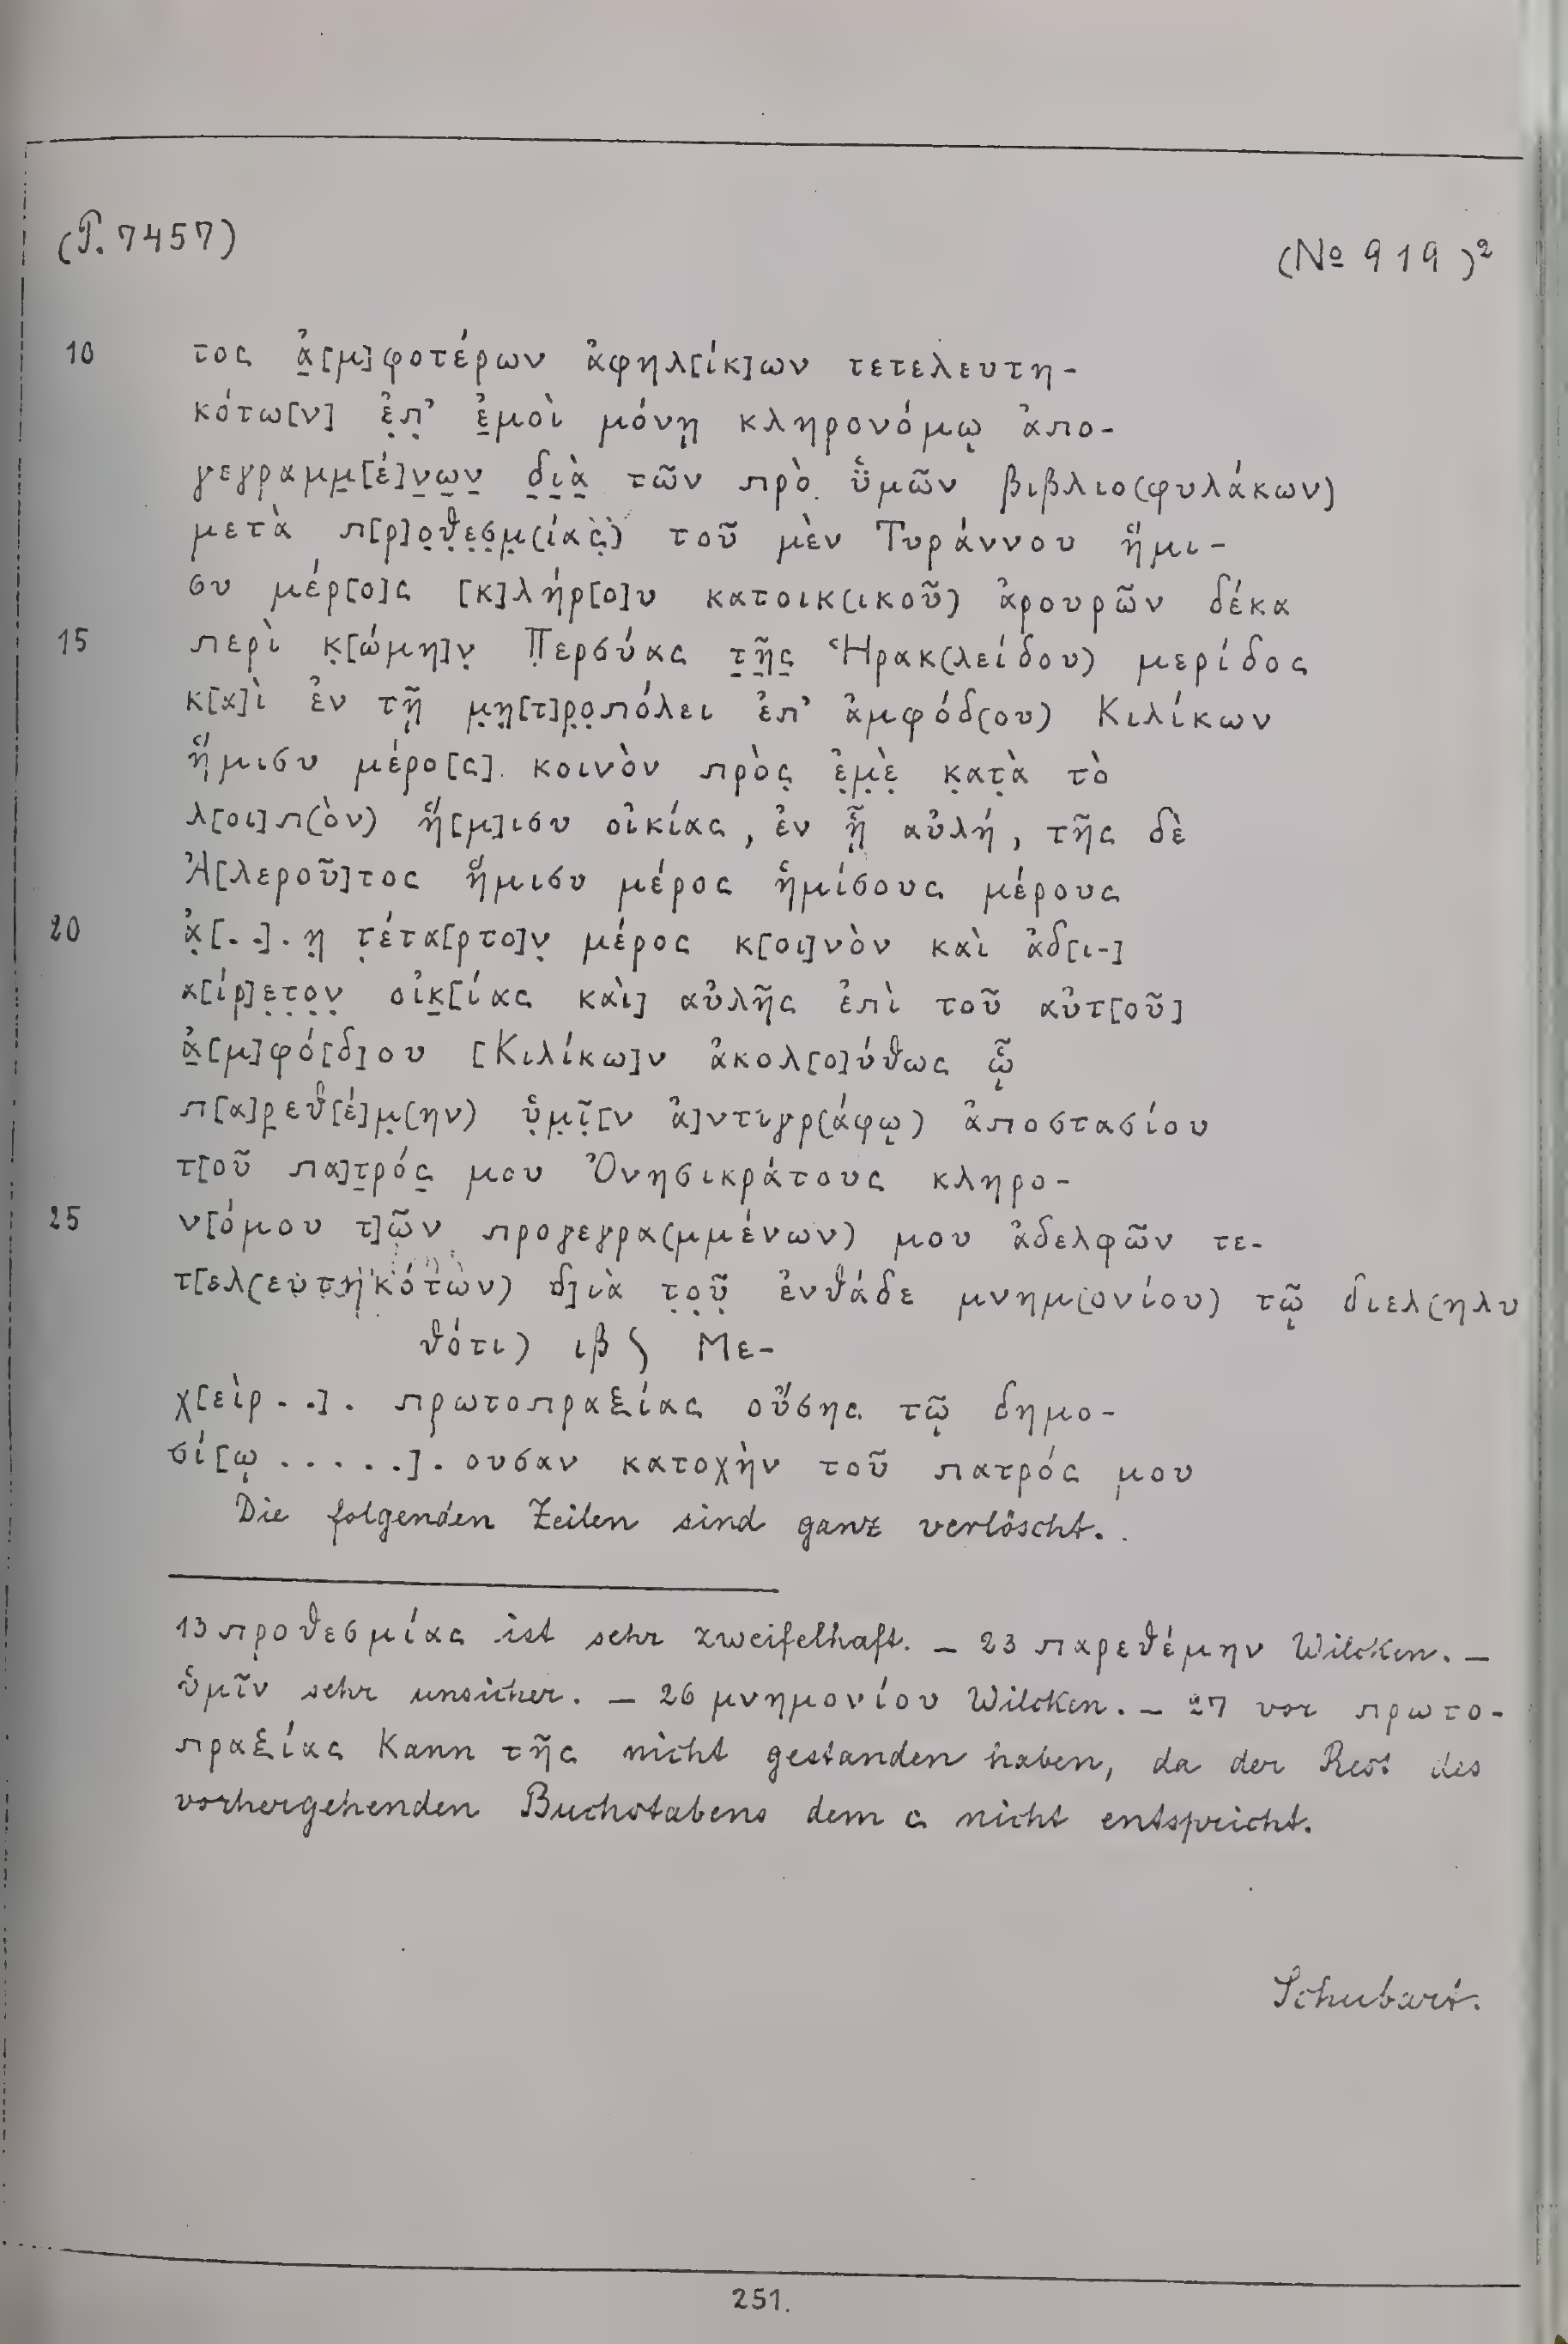 (P. 7457)
(No 919)²
10 τος ἀ̣[μ]φοτέρων ἀφηλ[ίκ]ων τετελευτη-
κότω[ν] ἐ̣π̣' ἐ̣μοὶ μόνῃ κληρονόμῳ ἀπο-
γεγραμμ̣[έ]ν̣ω̣ν̣ δ̣ι̣ὰ̣ τῶν πρὸ ὑ̈μῶν βιβλιο(φυλάκων)
μετὰ π[ρ]ο̣θ̣ε̣σ̣μ̣(ίας̣) τοῦ μὲν Τυράννου ἥμι-
συ μέρ[ο]ς [κ]λήρ[ο]υ κατοικ(ικοῦ) ἀρουρῶν δέκα
15 περὶ κ̣[ώμη]ν̣ Π̣ερσύας τ̣ῆ̣ς̣ Ἡρακ(λείδου) μερίδος
κ[α]ὶ ἐν τῇ μ̣η̣[τ]ρ̣ο̣πόλει ἐπ' ἀμφόδ(ου) Κιλίκων
ἥμισυ μέρο[ς] κοινὸν πρὸς̣ ἐ̣μ̣ὲ̣ κ̣ατ̣ὰ τὸ
λ[οι]π(ὸν) ἥ[μ]ισυ οἰκίας, ἐν ᾗ αὐλή, τῆς δὲ
Ἀ[λεροῦ]τος ἥμισυ μέρος ἡμίσους μέρους
20 ἀ̣[..]. η̣ τ̣έτα[ρτο]ν̣ μέρος κ[οι]νὸν καὶ ἀδ[ι-]
α[ίρ]ε̣τ̣ο̣ν̣ οἰκ̣[ίας καὶ] αὐλῆς ἐπὶ τοῦ αὐτ[οῦ]
ἀ̣[μ]φό[δ]ου [Κιλίκω]ν ἀκολ[ο]ύθως ᾧ
π[α]ρ̣εθ[έ]μ̣(ην) ὑ̣μ̣ῖ̣[ν ἀ]ντιγρ(άφῳ) ἀποστασίου
τ[οῦ πα]τ̣ρός̣ μου Ὀνησικράτους κληρο-
25 ν[όμου τ]ῶν προγεγρα(μμένων) μου ἀδελφῶν τε-
τ[ελ(ευτηκότων) δ]ιὰ τ̣ο̣ῦ̣ ἐνθάδε μνημ(ονίου) τῷ διελ(ηλυ
θότι) ιβ ʃ Με-
χ[εὶρ ..]. πρωτοπραξίας οὔσης τῷ δημο-
σί[ῳ .....]. ουσαν κατοχὴν τοῦ πατρός μου
Die folgenden Zeilen sind ganz verlöscht.
13 προθεσμίας ist sehr zweifelhaft. — 23 παρεθέμην Wilcken. —
ὑμῖν sehr unsicher. — 26 μνημονίου Wilcken. — 27 vor πρωτο-
πραξίας kann τῆς nicht gestanden haben, da der Rest des
vorhergehenden Buchstabens dem ς nicht entspricht.
Schubart.
251.